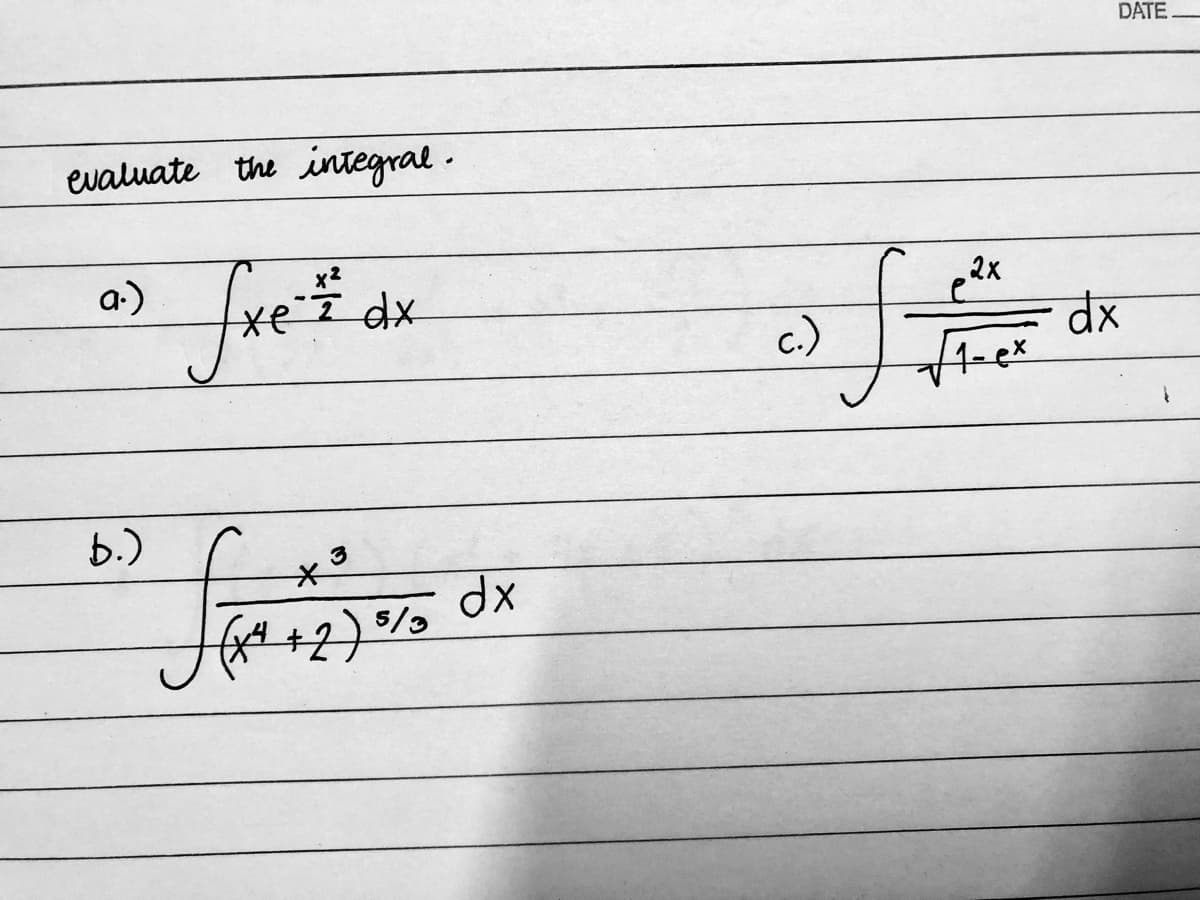 DATE
evaluate the integral.
a.) ∫xe^{-x²/2} dx
c.) ∫ e^{2x} / √(1-e^x) dx
b.) ∫ x³ / (x⁴ + 2)^{5/3} dx